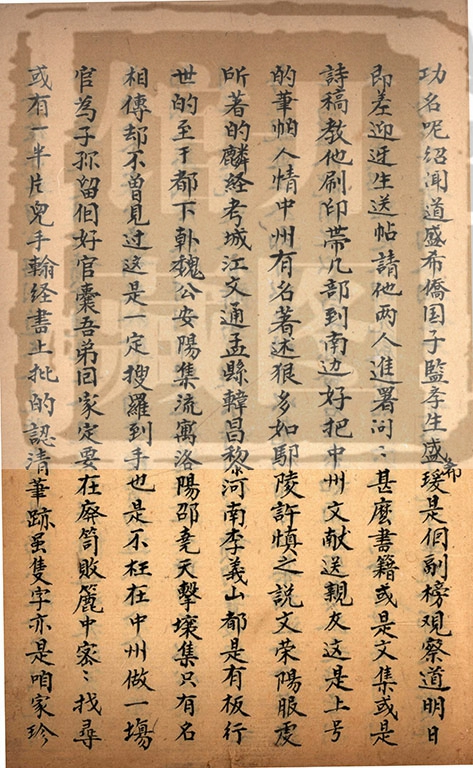 功名呢紹聞道盛希僑国子監斈生盛希瑗是個副榜观察道明日
即差迎迓生送帖請他两人進署问〻甚麽書籍或是文集或是
詩稿教他刷印帶几部到南边好把中州文献送親友这是上号
的筆帕人情中州有名著述狠多如鄢陵許慎之説文荣陽服虔
所著的麟経考城江文通孟縣韓昌黎河南李義山都是有板行
世的至于都下韩魏公安陽集流寓洛陽邵尭天擊壤集只有名
相傳却不曾見过这是一定搜羅到手也是不枉在中州做一塲
官為子孫留個好官囊吾弟回家定要在廃笥敗簏中密〻找尋
或有一半片兒手翰経書上批的認清筆跡虽隻字亦是咱家珍